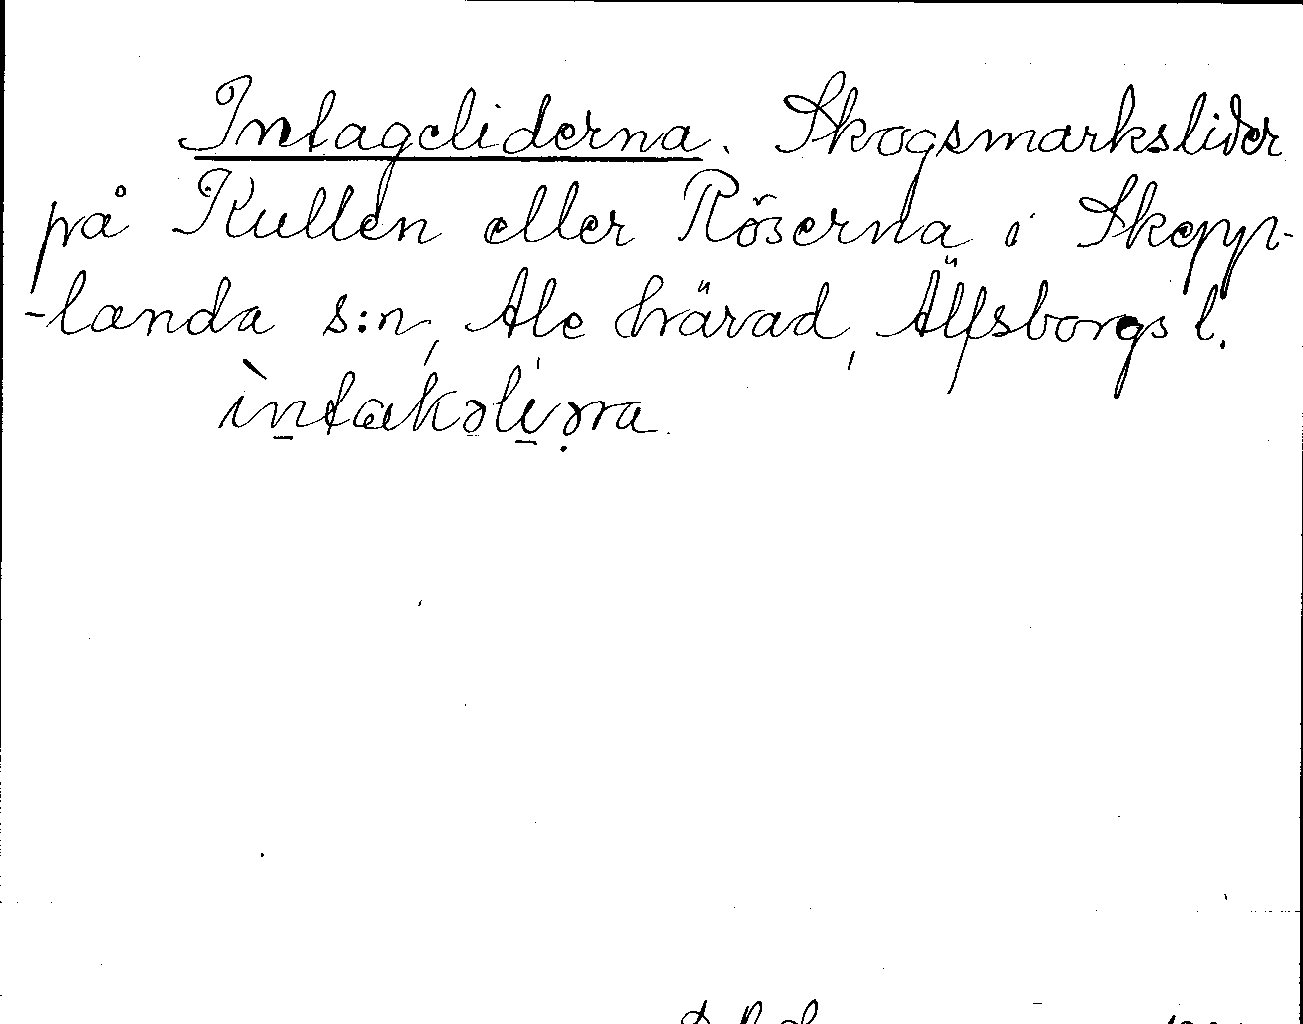 Intageliderna. Skogsmarkslider
på Kullen eller Röserna i Skepp-
-landa s:n, Ale härad, Älfsborgs l.
ìntakəlíəra